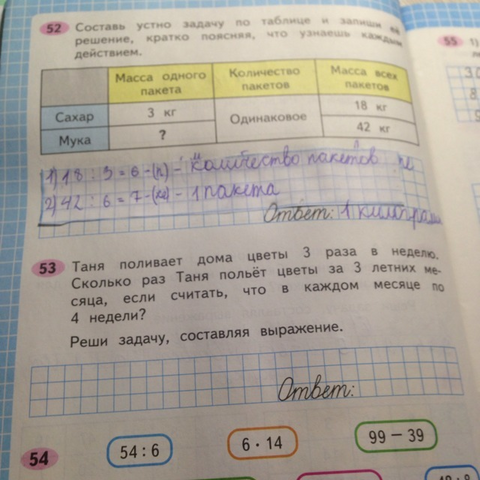 52 Составь устно задачу по таблице и запиши её
решение, кратко поясняя, что узнаешь каждым
действием.
55 1)
Масса одного пакета Количество пакетов Масса всех пакетов
Сахар 3 кг Одинаковое 18 кг
Мука ? 42 кг
1) 18 : 3 = 6 - (п) - количество пакетов
2) 42 : 6 = 7 - (кг) - 1 пакета
Ответ: 1
53 Таня поливает дома цветы 3 раза в неделю.
Сколько раз Таня польёт цветы за 3 летних ме-
сяца, если считать, что в каждом месяце по
4 недели?
Реши задачу, составляя выражение.
Ответ:
54 54 : 6 6 · 14 99 − 39